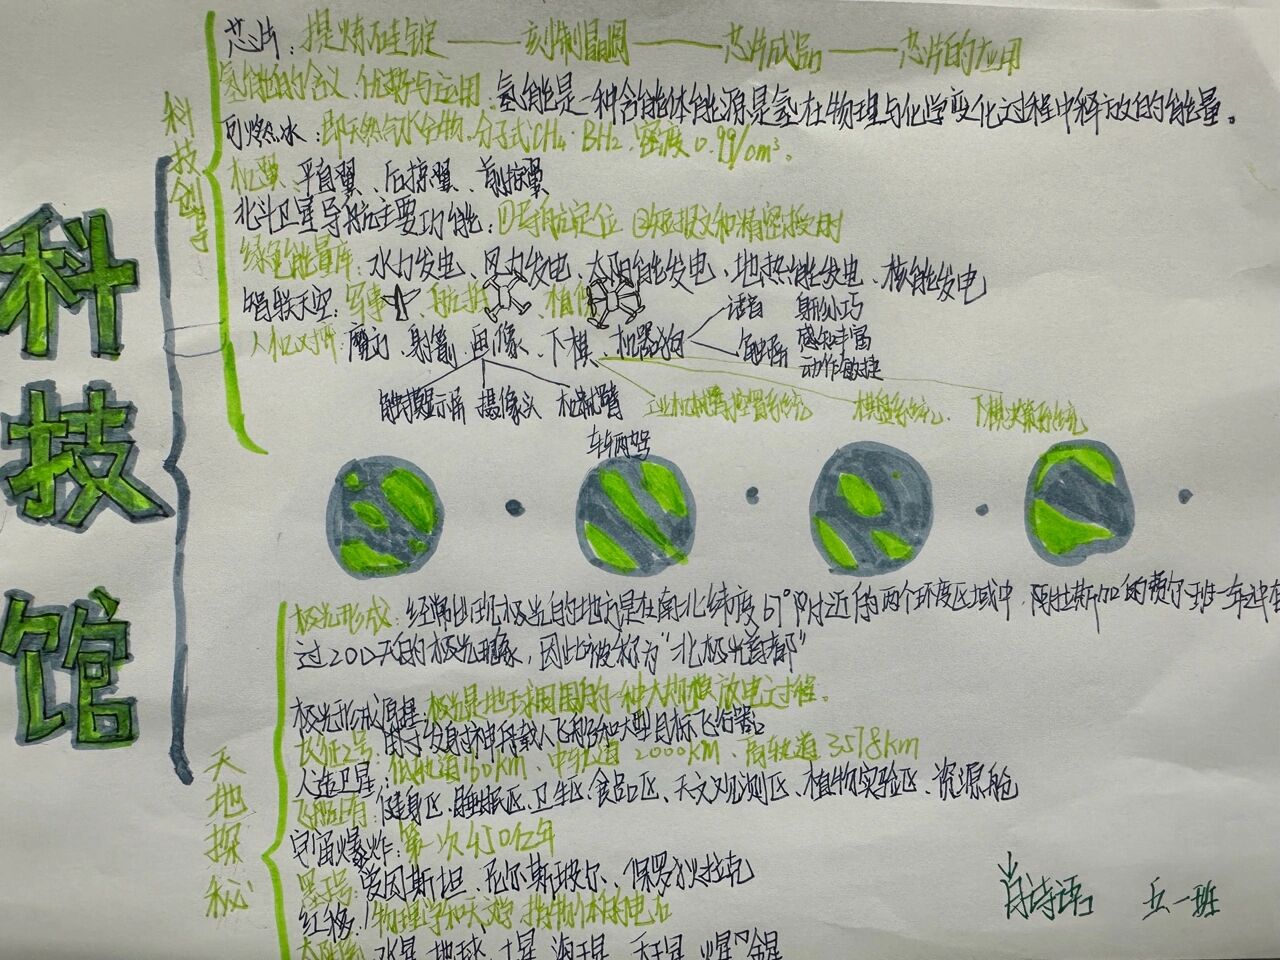 科技馆
科技创导
芯片：提炼硅锭——刻制晶圆——芯片成品——芯片的应用
氢能的含义、优势与运用：氢能是一种含能体能源是氢在物理与化学变化过程中释放的能量。
可燃冰：即天然气水合物.分子式CH4·8H2.密度0.99/cm³。
机翼：平直翼、后掠翼、前掠翼
北斗卫星导航主要功能：①导航定位 ②短报文和精密授时
绿色能量库：水力发电、风力发电、太阳能发电、地热能发电、核能发电
智联天空：军事、航拍、植保
人机对冲：魔方、射箭、画像、下棋、机器狗
语音 身形小巧
触屏 感知丰富
动作敏捷
触摸显示屏 摄像头 机械臂 工业机械臂控置系统 棋盘系统 下棋决策系统
车辆驾
天地探秘
极光形成：经常出现极光的地方是在南北纬度67°附近的两个环度区域中，阿拉斯加的费尔班一年冲有
过200天的极光现象，因此被称为“北极光首都”
极光形成原理：极光是地球周围的一种大规模放电过程。
长征2号：用于发射神舟载人飞船和大型目标飞行器。
人造卫星：低轨道160KM、中轨道2000KM、高轨道3578KM
飞船内有：健身区、睡眠区、卫生区、食品区、天文观测区、植物实验区、资源舱
宇宙爆炸：第一次450亿年
爱因斯坦、尼尔斯玻尔、保罗狄拉克
红移：物理学和天文学
太阳系：水星、地球、土星、海王星、天王星、火星、金星
肖诗语 五一班